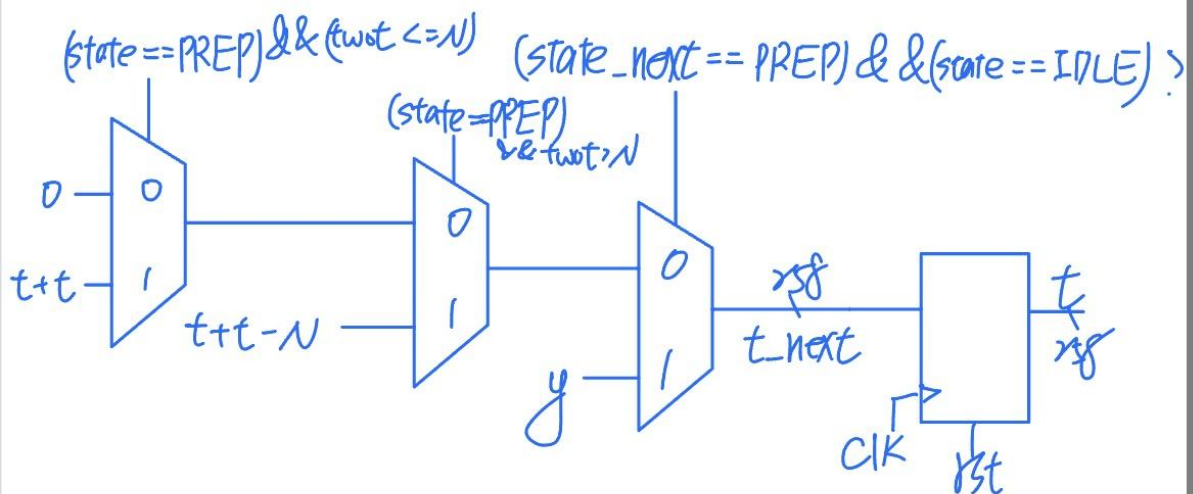 (state==PREP)&&(twot<=N)
(state_next==PREP)&&(state==IDLE)?
(state=PREP)
&&twot>N
0
0
t+t
1
0
1
t+t-N
0
1
y
t_next
t
CIK
rst